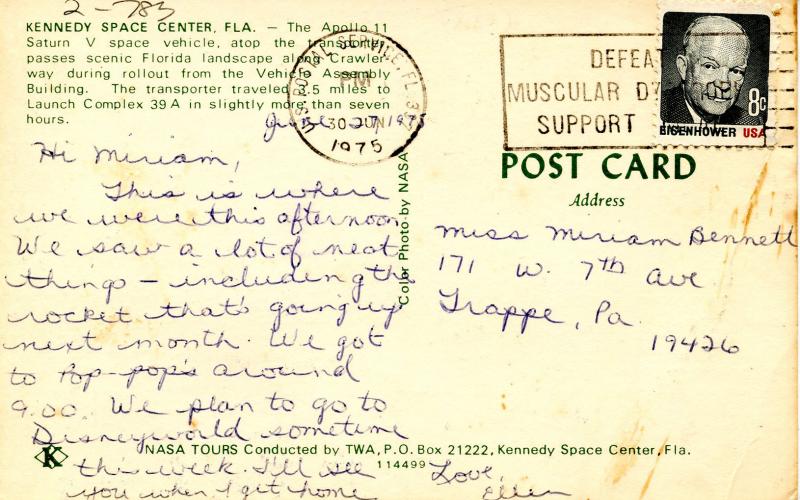 2-783
KENNEDY SPACE CENTER, FLA. — The Apollo 11
Saturn V space vehicle, atop the transporter,
passes scenic Florida landscape along Crawler
way during rollout from the Vehicle Assembly
Building. The transporter traveled 3.5 miles to
Launch Complex 39A in slightly more than seven
hours.
June 27, 1975
Hi Miriam,
This is where
we were this afternoon.
We saw a lot of neat
things - including the
rocket that's going up
next month. We got
to Pop-pop's around
9:00. We plan to go to
Disneyworld sometime
this week. I'll see
you when I get home
Love,
Ellen
Color Photo by NASA
U.S. POSTAL SERVICE, FL
PM
30 JUN
1975
DEFEAT
MUSCULAR DY
SUPPORT
8c
EISENHOWER USA
POST CARD
Address
Miss Miriam Bennett
171 W. 7th Ave
Trappe, Pa.
19426
K
NASA TOURS Conducted by TWA, P.O. Box 21222, Kennedy Space Center, Fla.
114499